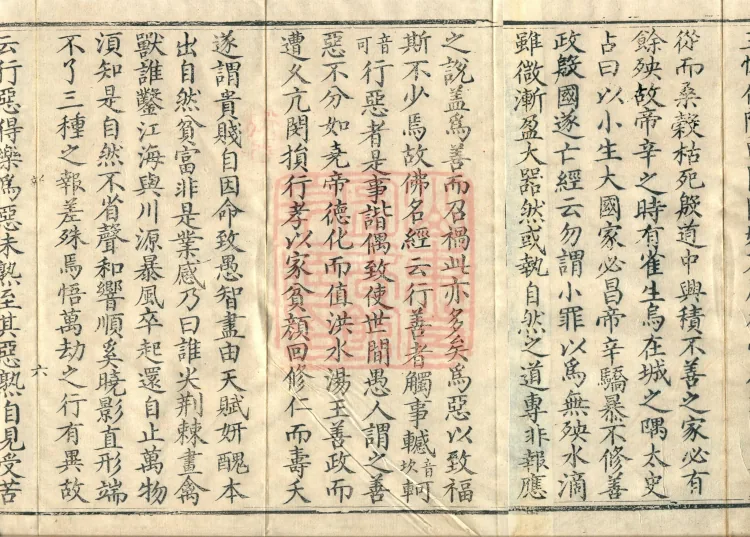 從而桑穀枯死殷道中興積不善之家必有
餘殃故帝辛之時有雀生烏在城之隅太史
占曰以小生大國家必昌帝辛驕暴不修善
政殷國遂亡經云勿謂小罪以為無殃水滴
雖微漸盈大器然或執自然之道專非報應
之說盖為善而召禍此亦多矣為惡以致福
斯不少焉故佛名經云行善者觸事轗音坎軻
音可行惡者是事諧偶致使世間愚人謂之善
惡不分如堯帝德化而值洪水湯王善政而
遭久亢閔損行孝以家貧顏回修仁而壽夭
遂謂貴賤自因命致愚智盡由天賦妍醜本
出自然貧富非是業感乃曰誰尖荆棘畫禽
獸誰鑿江海與川源暴風卒起還自止萬物
須知是自然不省聲和響順奚曉影直形端
不了三種之報差殊焉悟萬劫之行有異故
六
云行惡得樂為惡未熟至其惡熟自見受苦